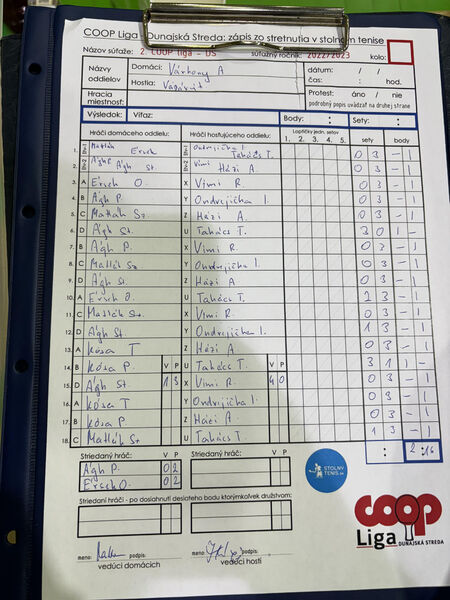 COOP Liga Dunajská Streda: zápis zo stretnutia v stolnom tenise
Názov súťaže: 2. COOP liga - DS súťažný ročník: 2022/2023 kolo:
Názvy oddielov Domáci: Várkony A dátum: / /
Hostia: čas: : hod.
Hracia miestnosť: Protest: áno / nie
podrobný popis uvádzať na druhej strane
Výsledok: Víťaz: Body: : Sety: :
Hráči domáceho oddielu: Hráči hosťujúceho oddielu: Loptičky jedn. setov 1. 2. 3. 4. 5. sety body
1. Matláh Érsch Ondrejička I. Takács T. 0 3 - 1
2. Ágh P. Ágh St. Vimi Házi A 0 3 - 1
3. A Érsch O. X Vimi R. 0 3 - 1
4. B Ágh P. Y Ondrejička I. 0 3 - 1
5. C Matláh Sz. Z Házi A 0 3 - 1
6. D Ágh St. U Takács T. 3 0 1 -
7. B Ágh P. X Vimi R. 0 3 - 1
8. C Matláh Sz Y Ondrejička I. 0 3 - 1
9. D Ágh St. Z Házi A 0 3 - 1
10. A Érsch O. U Takács T. 2 3 - 1
11. C Matláh Sz. X Vimi R. 0 3 - 1
12. D Ágh St. Y Ondrejička I. 1 3 - 1
13. A Kósa T Z Házi A. 0 3 - 1
14. B Kósa P. V P U Takács T. V P 3 1 1 -
15. D Ágh St 1 3 X Vimi R. 4 0 0 3 - 1
16. A Kósa T Y Ondrejička I. 0 3 - 1
17. B Kósa P Z Házi A 0 3 - 1
18. C Matláh Sz U Takács T. 1 3 - 1
: 2 : 16
Striedaný hráč: V P Striedaný hráč: V P
Ágh P. 0 2
Érsch O. 0 2
STOLNÝ TENIS.SK
Striedaní hráči - po dosiahnutí desiateho bodu ktorýmkoľvek družstvom:
coop
Liga DUNAJSKÁ STREDA
meno: podpis: meno: podpis:
vedúci domácich vedúci hostí